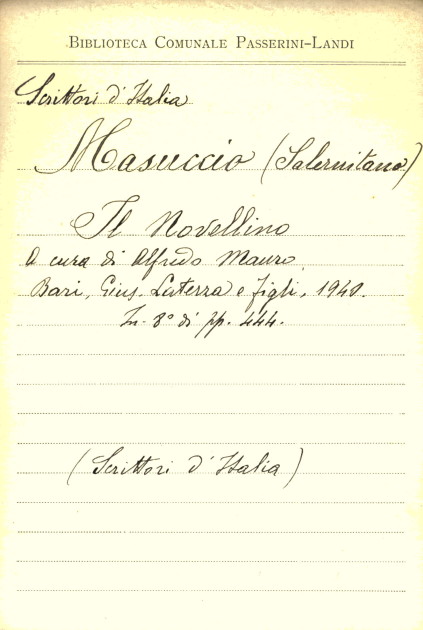 BIBLIOTECA COMUNALE PASSERINI-LANDI
Scrittori d'Italia
Masuccio (Salernitano)
Il Novellino
A cura di Alfredo Mauro.
Bari, Gius. Laterza e figli, 1940.
In-8° di pp. 444.
(Scrittori d'Italia)